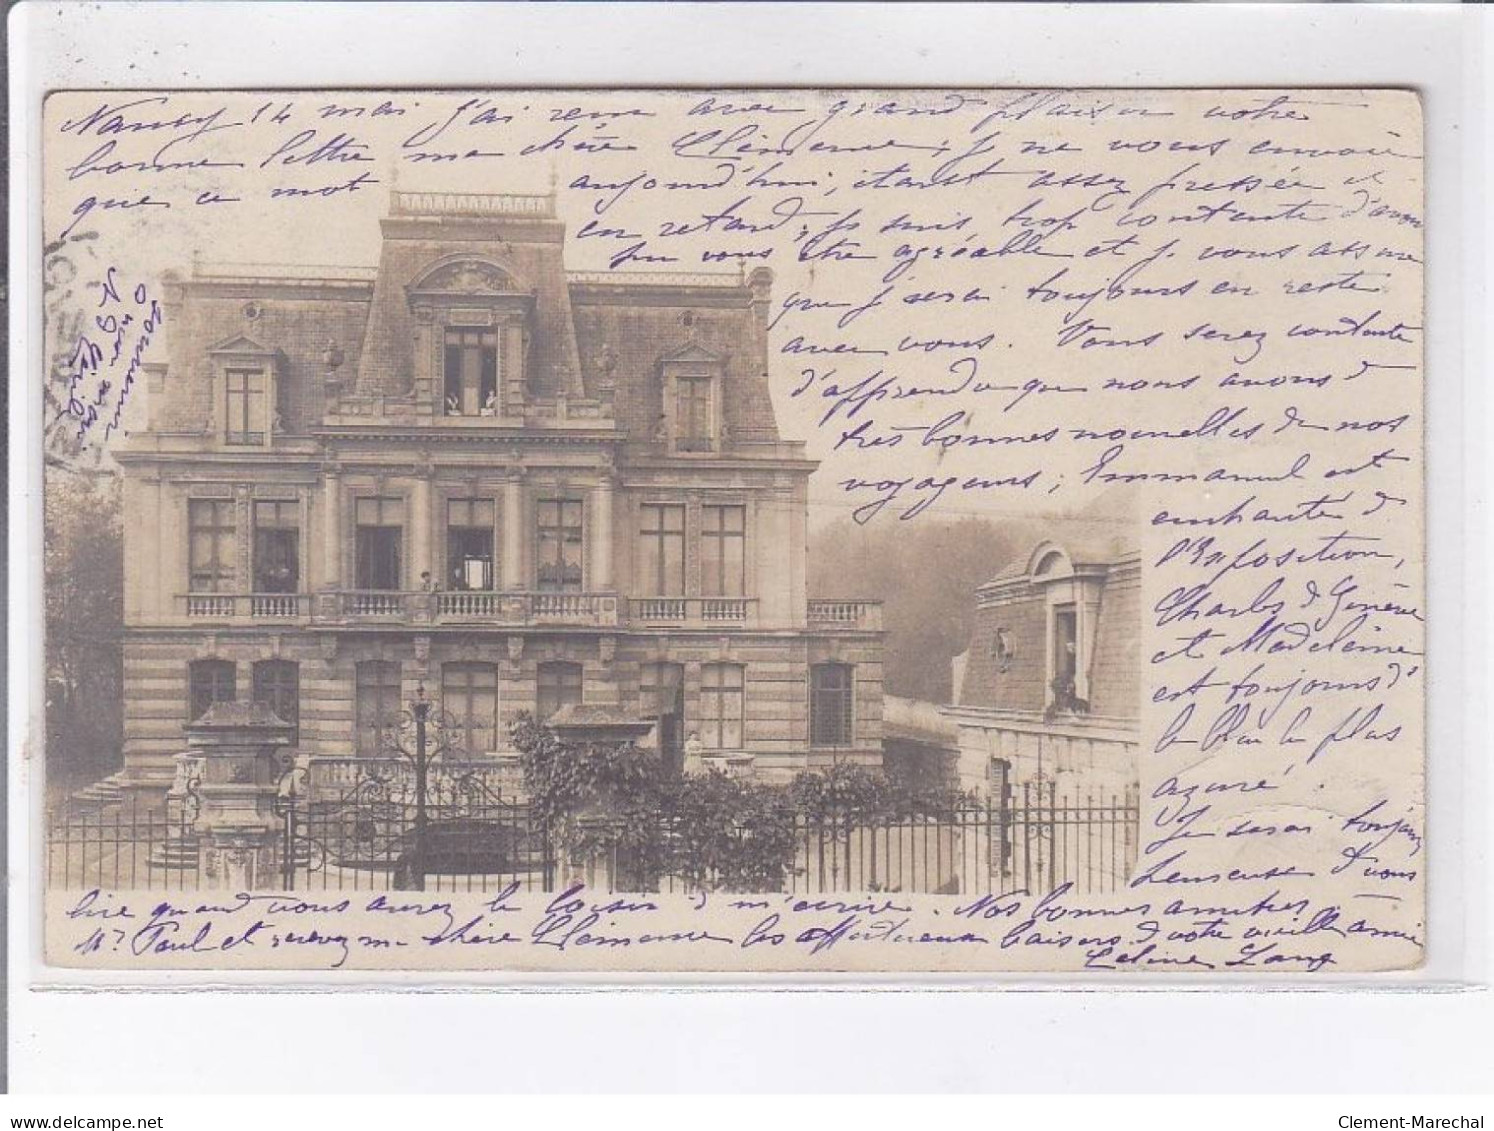 Nancy 14 mai j'ai reçu avec grand plaisir votre
bonne lettre ma chère Clémence, je ne vous envoie
que ce mot aujourd'hui, étant assez pressée et
en retard, je suis trop contente d'avoir
pu vous être agréable et je vous assure
que je serai toujours en reste
avec vous. Vous serez contente
d'apprendre que nous avons de
très bonnes nouvelles de nos
voyageurs ; Emmanuel est
enchanté de
l'Exposition,
Charles de Genève
et Madeleine
est toujours ds
le bleu le plus
azuré.
Je serai toujours
heureuse de vous
lire quand vous aurez le loisir de m'écrire. Nos bonnes amitiés
Mr Paul et recevez ma chère Clémence les affectueux baisers de votre vieille amie
Celine Lang
delcampe.net
Clement-Marechal